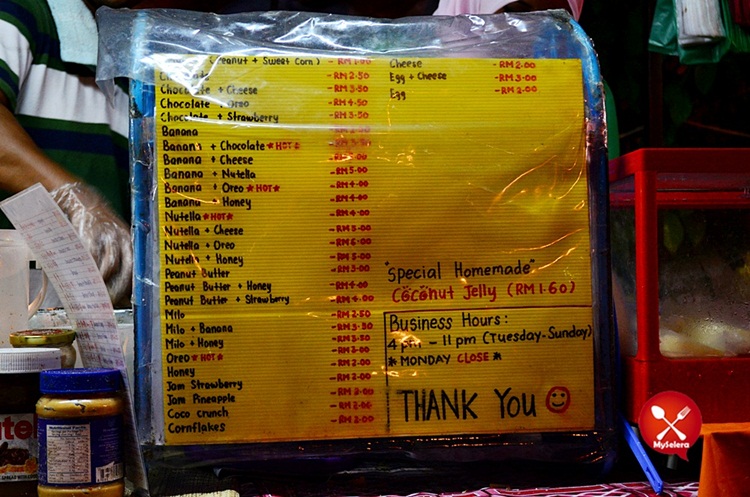 (Peanut + Sweet Corn)
Chocolate -RM 2.50
Chocolate + Cheese -RM 3.50
Chocolate + Oreo -RM 4.50
Chocolate + Strawberry -RM 3.50
Banana
Banana + Chocolate *HOT*
Banana + Cheese
Banana + Nutella
Banana + Oreo *HOT* -RM 4.00
Banana + Honey -RM 4.00
Nutella *HOT* -RM 4.00
Nutella + Cheese -RM 5.00
Nutella + Oreo -RM 6.00
Nutella + Honey -RM 5.00
Peanut Butter -RM 3.00
Peanut Butter + Honey -RM 4.00
Peanut Butter + Strawberry -RM 4.00
Milo -RM 2.50
Milo + Banana -RM 3.50
Milo + Honey -RM 3.50
Oreo *HOT* -RM 3.00
Honey -RM 2.00
Jam Strawberry -RM 2.00
Jam Pineapple
Coco crunch
Cornflakes -RM 2.00
Cheese -RM 2.00
Egg + Cheese -RM 3.00
Egg -RM 2.00
"Special Homemade"
Coconut Jelly (RM 1.60)
Business Hours:
4 pm - 11 pm (Tuesday-Sunday)
* MONDAY CLOSE *
THANK YOU
MySelera